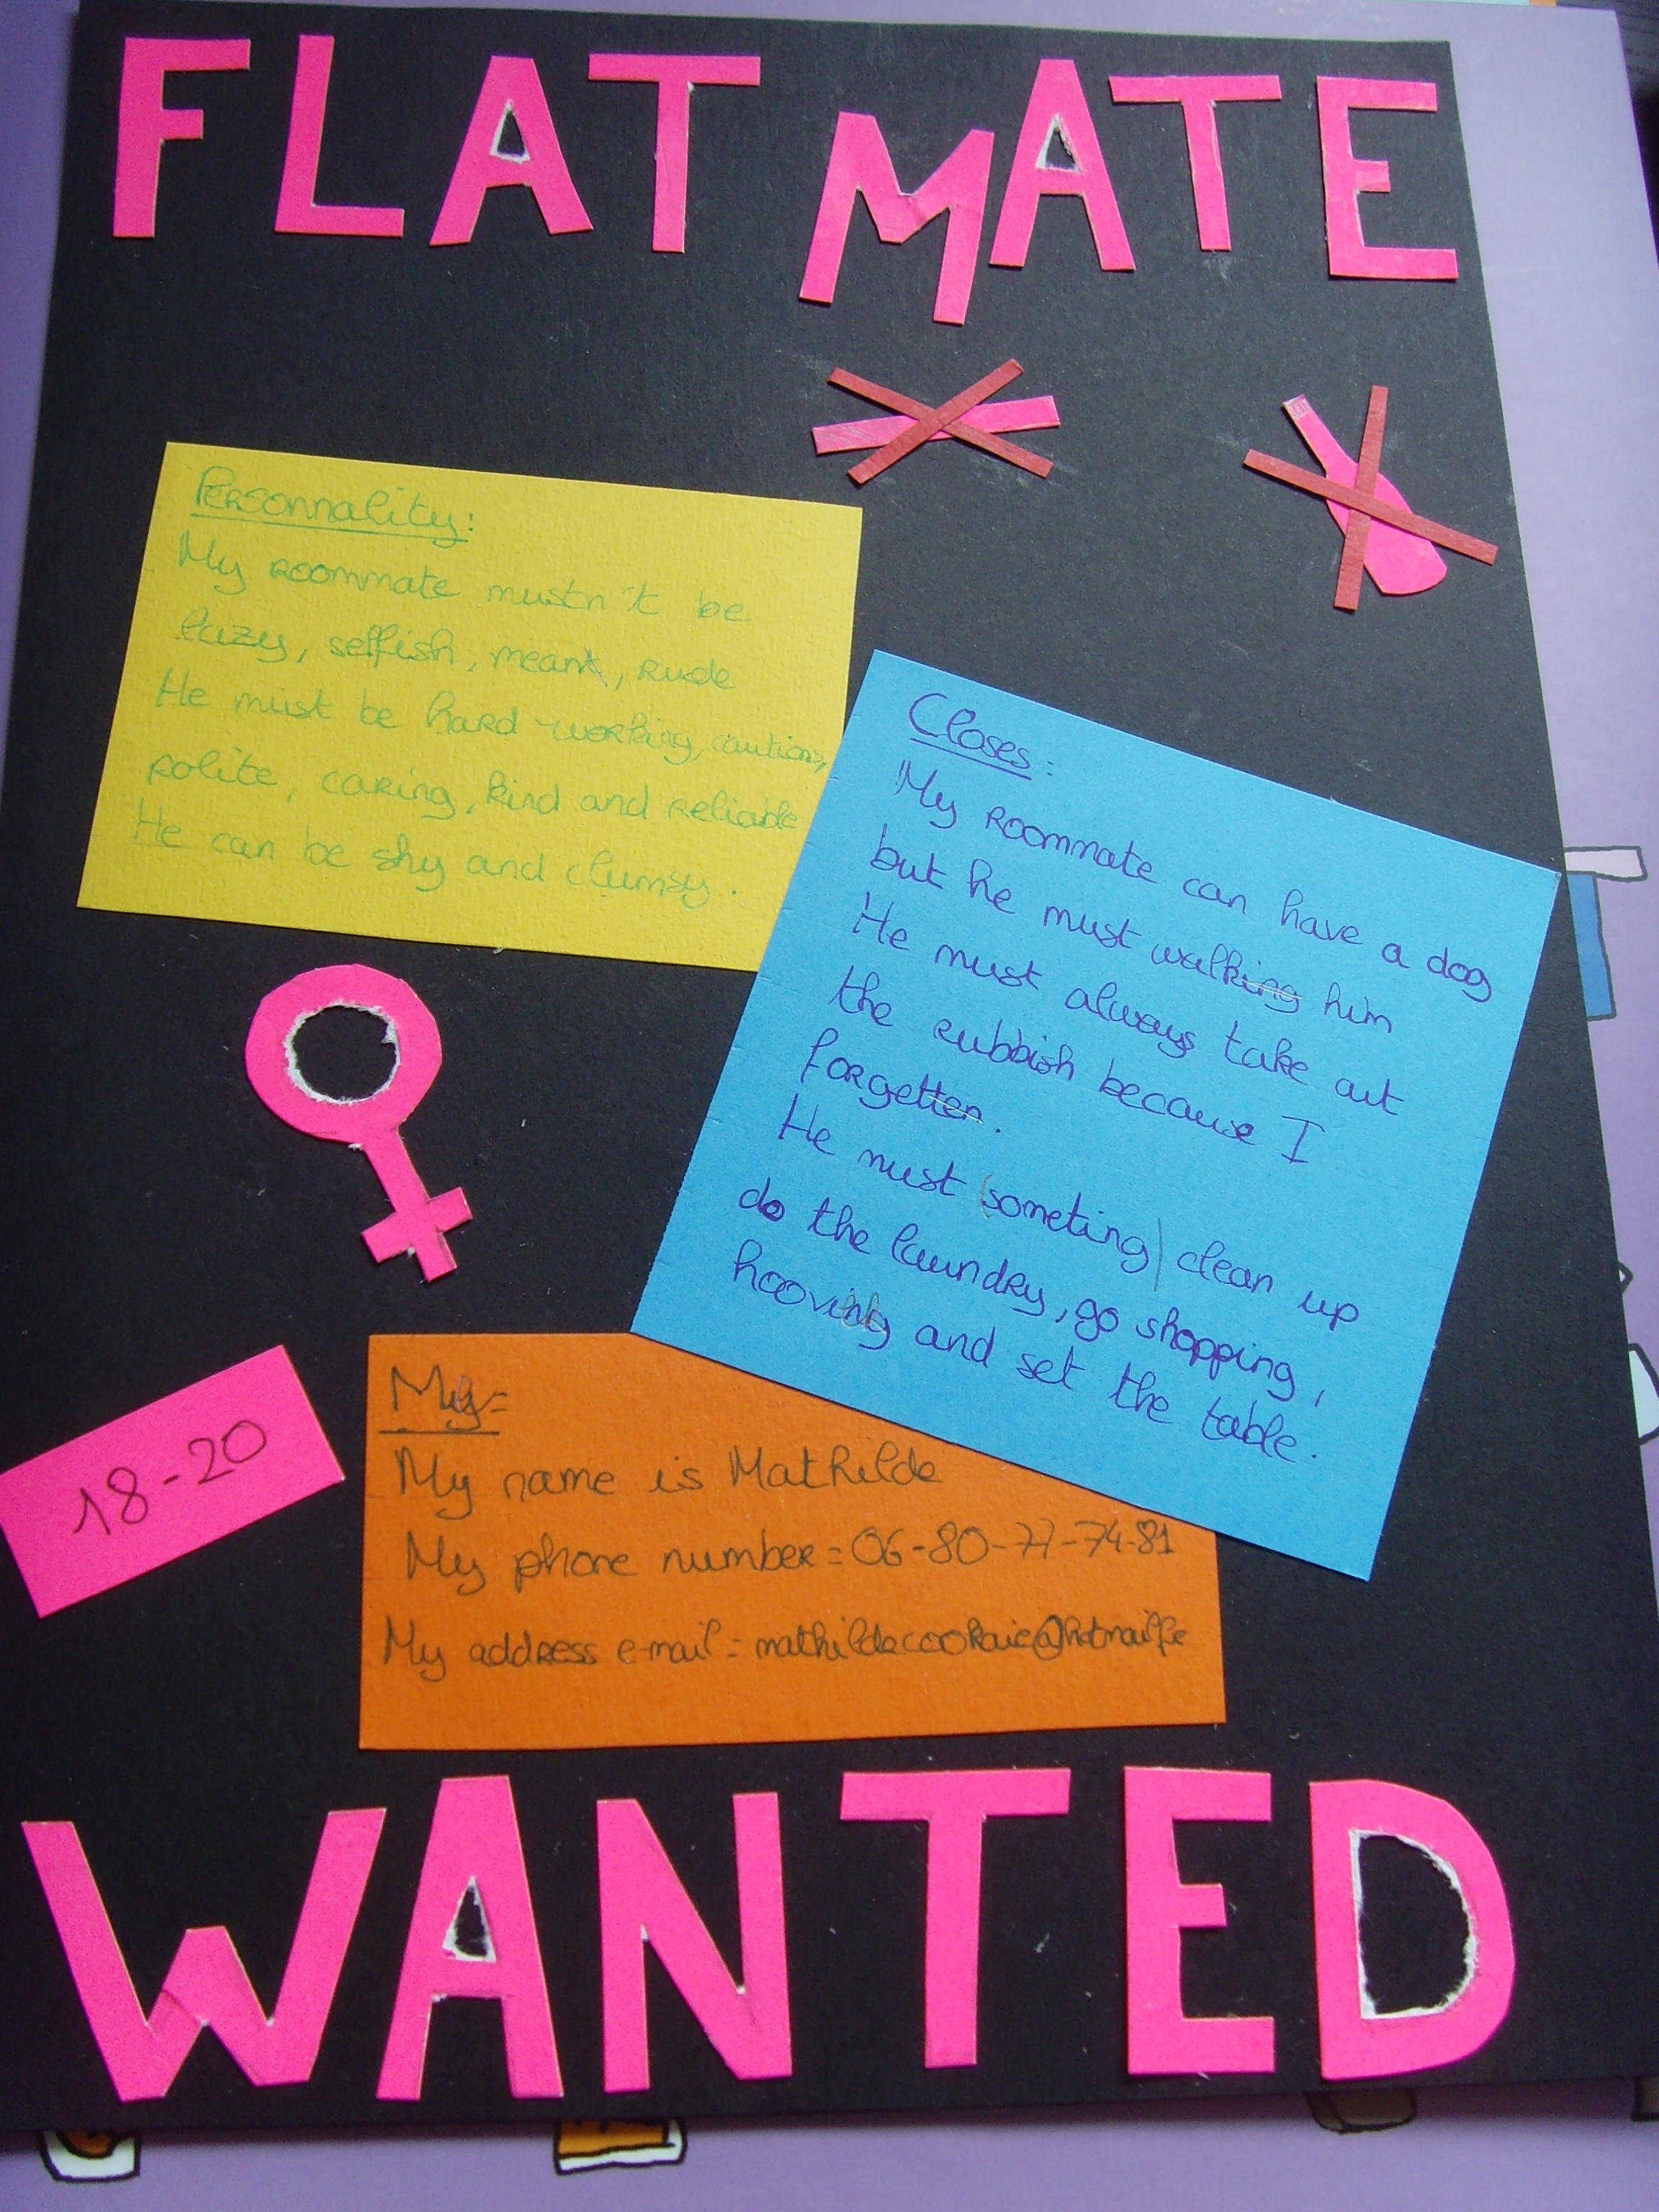 FLAT MATE
Personnality:
My roommate mustn't be
lazy, selfish, mean, rude
He must be hard-working, cautious,
polite, caring, kind and reliable
He can be shy and clumsy.
Closes:
My roommate can have a dog
but he must walking him
He must always take out
the rubbish because I
forgetten.
He must (someting) clean up
do the laundry, go shopping,
hooving and set the table.
18-20
My=
My name is Mathilde
My phone number = 06-80-77-74-81
My address e-mail =
WANTED